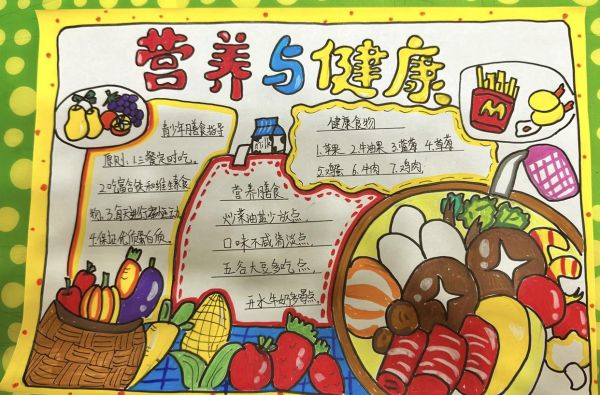 营养与健康
青少年膳食指导
原则:1.三餐定时吃、
2.吃富含铁和维生素食
物、3.每天进行运动
4.保证优质蛋白质。
营养膳食
炒菜油盐少放点,
口味不咸清淡点,
五谷大豆多吃点,
开水牛奶多喝点
健康食物
1.苹果 2.牛油果 3.蓝莓 4.草莓
5.鸡蛋 6.牛肉 7.鸡肉
M